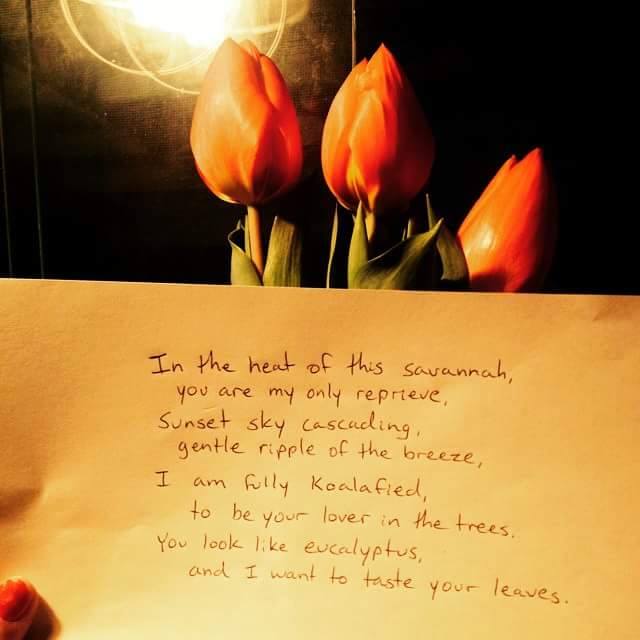 In the heat of this savannah,
you are my only reprieve,
Sunset sky cascading,
gentle ripple of the breeze,
I am fully Koalafied,
to be your lover in the trees.
You look like eucalyptus,
and I want to taste your leaves.